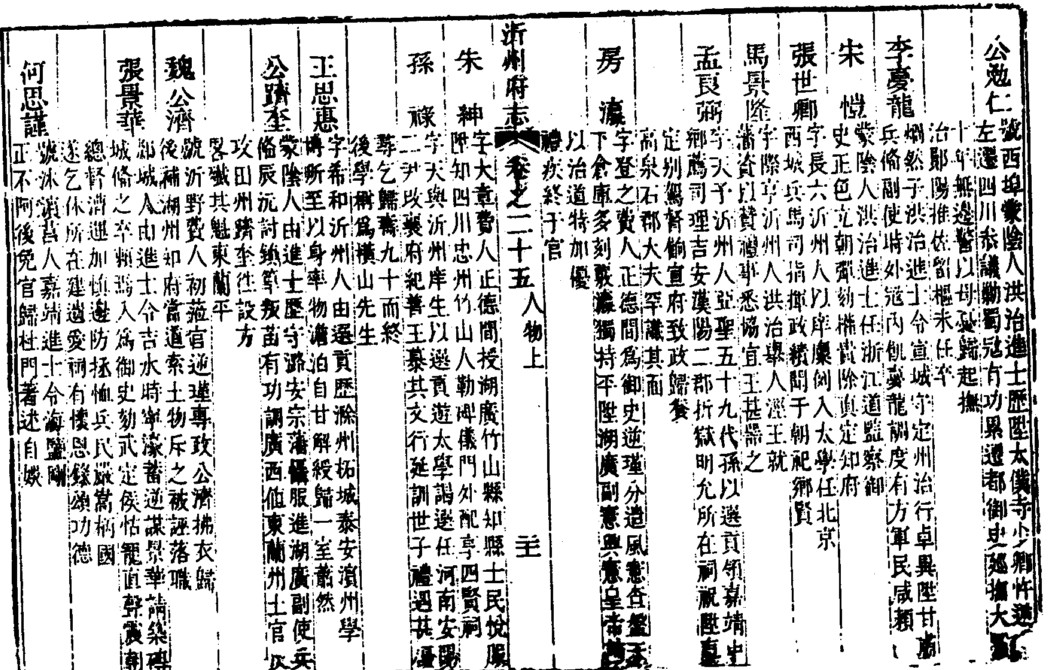 公勉仁
號西埠蒙陰人洪治進士歷陞太僕寺少卿忤逆
左遷四川叅議勦蜀冦有功累遷都御史廵撫大
十年無邊警以母憂歸起撫
治鄖陽推佐留樞未任卒
李慶龍
烱然子洪治進士令宣城守定州治行卓異陞甘肅
兵備副使時外冦内飢慶龍調度有方軍民咸賴
宋愷
蒙陰人洪治進士任浙江道監察御
史正色立朝彈劾權貴除真定知府
張世卿
字長六沂州人以庠廪例入太學任北京
西城兵馬司指揮政績聞于朝祀鄉賢
馬景隆
字際亨沂州人洪治舉人涇王就
藩資以贊禮事悉協宜王甚器之
孟良弼
字天予沂州人亞聖五十九代孫以選貢領嘉靖
鄉薦司理吉安漢陽二郡折獄明允所在祠祝陞
定别駕督餉宣府致政歸養
高泉石郡大夫罕識其面
房瀛
字登之費人正德間為御史逆瑾分遣風憲查盤
下倉庫多刻覈瀛獨持平陞湖廣副憲興憲皇帝
以治道特加優
禮疾終于官
沂州府志 卷之二十五 人物上
朱紳
字大章費人正德間授湖廣竹山縣知縣士民悅服
陞知四川忠州竹山人勒碑儀門外配享四賢祠
孫祿
字天與沂州庠生以選貢遊太學謁選任河南安陽
二尹改襄府紀善王慕其文行延訓世子禮遇甚渥
尋乞歸壽九十而終
後學稱為橫山先生
王思惠
字希和沂州人由選貢歷滁州柘城泰安濱州學
博所至以身率物澹泊自甘解綬歸一室蕭然
公躋奎
蒙陰人由進士歷守潞安宗藩懾服進湖廣副使兵
備辰沅討鎮筸叛苗有功調廣西他東蘭州土官
攻田州躋奎徃設方
畧殱其魁東蘭平
魏公濟
號沂野費人初蒞官逆瑾專政公濟拂衣歸
後補湖州知府當道索土物斥之被誣落職
張景華
郯城人由進士令吉水時寧濠蓄逆謀景華請築磚
城備之卒賴焉入為御史劾武定侯怙寵直聲震
總督漕運加慎邊防拯恤兵民嚴嵩柄國
遂乞休所在建遺愛祠有懷恩錄頌功德
何思謹
號沭濱莒人嘉靖進士令海鹽剛
正不阿後免官歸杜門著述自娛